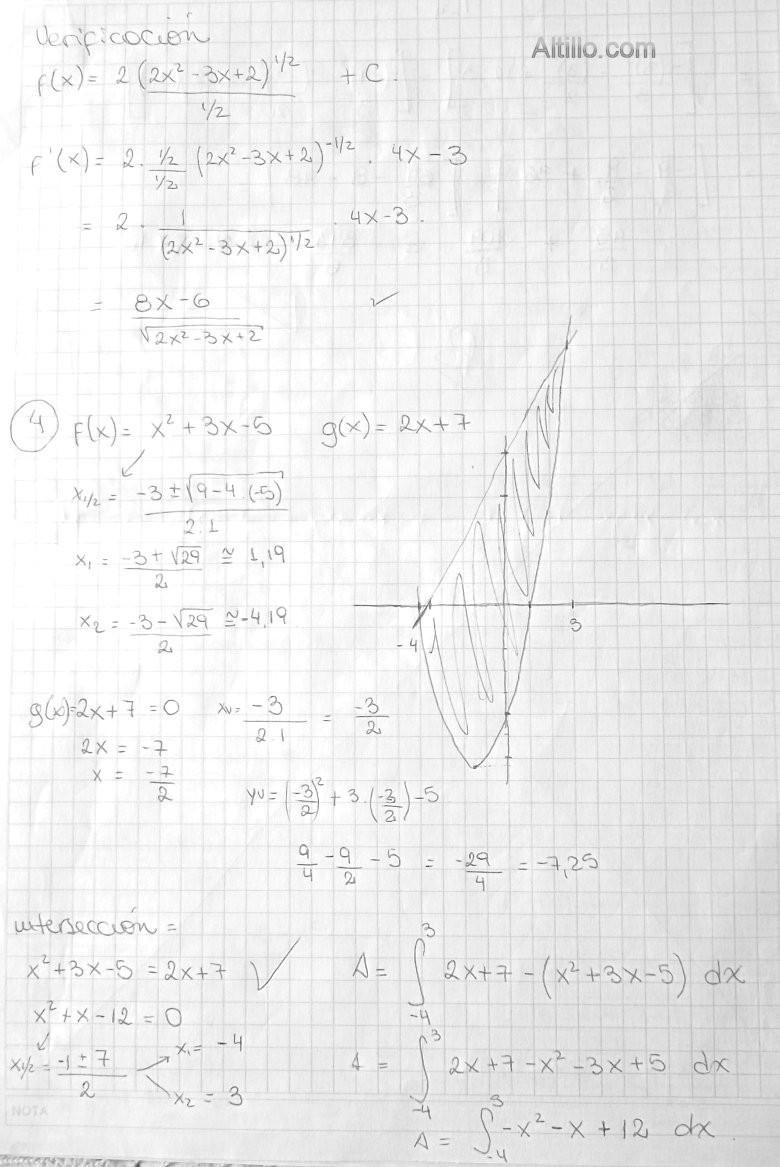 Verificación
Altillo.com
f(x) = 2 (2x² - 3x + 2)^1/2 / 1/2 + C.
f'(x) = 2 · 1/2 / 1/2 (2x² - 3x + 2)^-1/2 · 4x - 3
= 2 · 1 / (2x² - 3x + 2)^1/2 · 4x - 3.
= 8x - 6 / √2x² - 3x + 2 ✓
4 f(x) = x² + 3x - 5 g(x) = 2x + 7
x1/2 = -3 ± √9 - 4·(-5) / 2.1
x₁ = -3 + √29 / 2 ≅ 1,19
x₂ = -3 - √29 / 2 ≅ -4,19
-4 3
g(x) = 2x + 7 = 0 xv = -3 / 2.1 = -3/2
2x = -7
x = -7/2
yv = (-3/2)² + 3·(-3/2) - 5
9/4 - 9/2 - 5 = -29/4 = -7,25
intersección =
x² + 3x - 5 = 2x + 7 ✓
x² + x - 12 = 0
x1/2 = -1 ± 7 / 2
x₁ = -4
x₂ = 3
A = ∫₋₄³ 2x + 7 - (x² + 3x - 5) dx
A = ∫₋₄³ 2x + 7 - x² - 3x + 5 dx
A = ∫₋₄³ -x² - x + 12 dx
NOTA